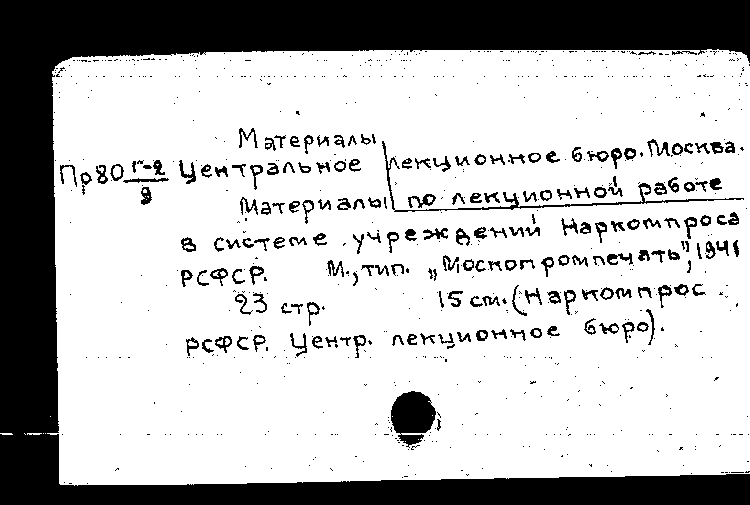 Материалы
Пр80 г-2 Центральное лекционное бюро. Москва.
9
Материалы по лекционной работе
в системе учреждений Наркомпроса
РСФСР. М., тип. „Москопромпечать", 1941
23 стр. 15 см. (Наркомпрос
РСФСР. Центр. лекционное бюро).